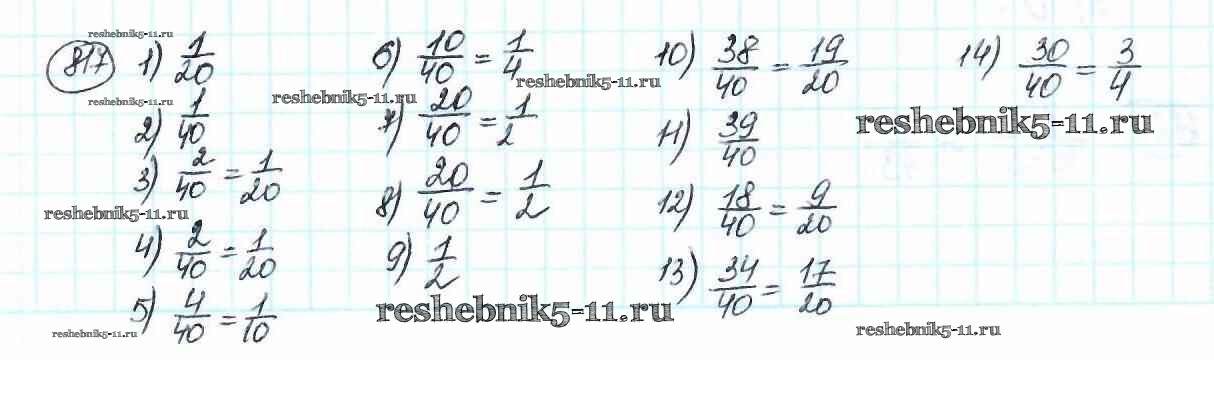 817
reshebnik5-11.ru
1) 1/20
reshebnik5-11.ru
2) 1/40
3) 2/40 = 1/20
reshebnik5-11.ru
4) 2/40 = 1/20
5) 4/40 = 1/10
reshebnik5-11.ru
6) 10/40 = 1/4
reshebnik5-11.ru
7) 20/40 = 1/2
8) 20/40 = 1/2
9) 1/2
reshebnik5-11.ru
10) 38/40 = 19/20
reshebnik5-11.ru
11) 39/40
12) 18/40 = 9/20
13) 34/40 = 17/20
14) 30/40 = 3/4
reshebnik5-11.ru
reshebnik5-11.ru